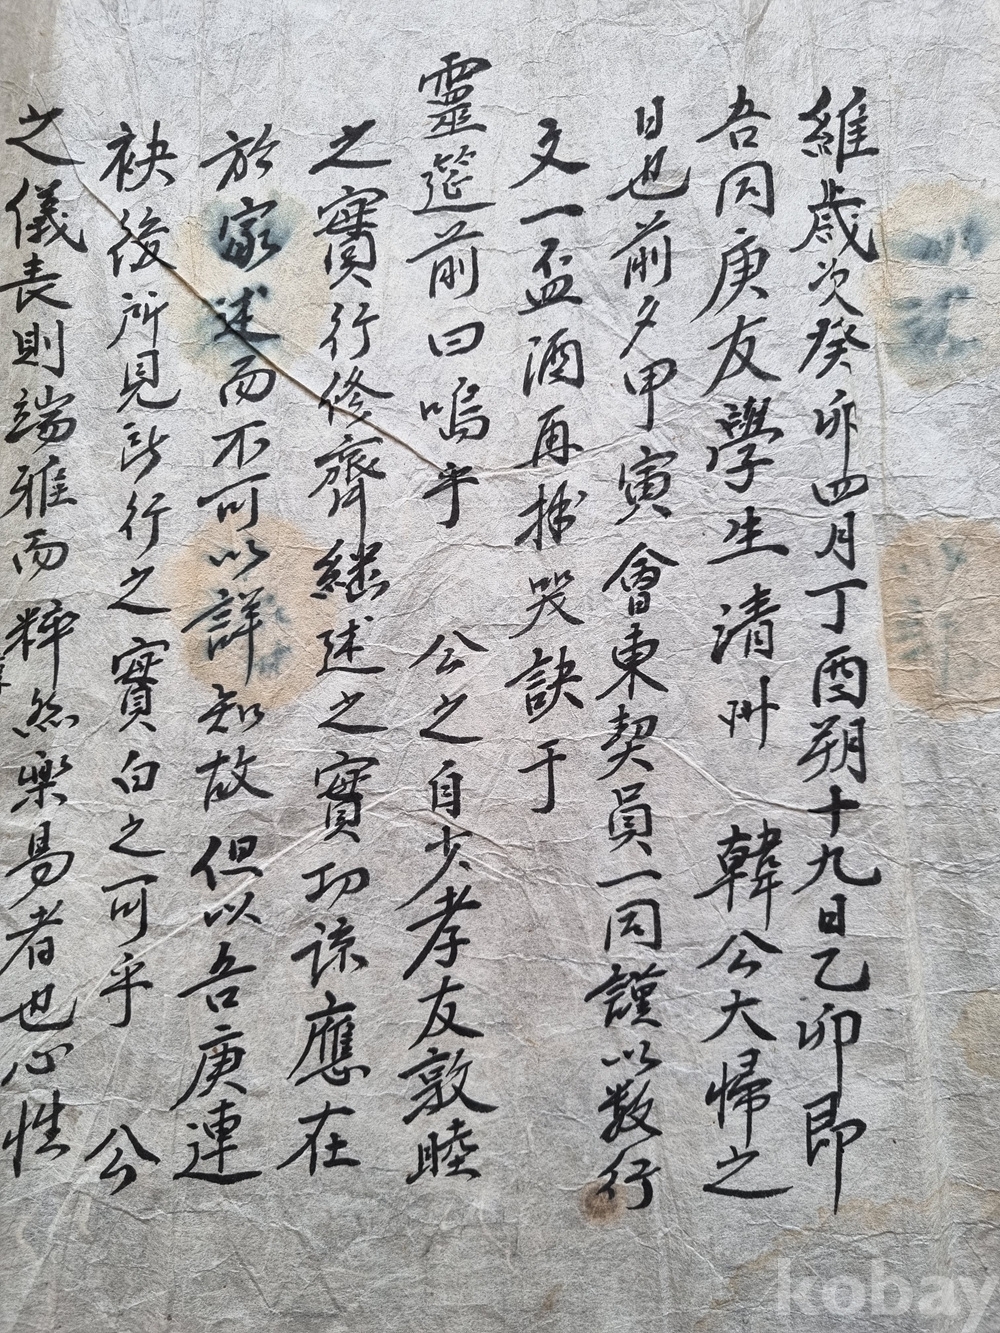 維歲次癸卯四月丁酉朔十九日乙卯卽
吾同庚友學生淸州 韓公大歸之
日也前夕甲寅會東契員一同謹以數行
文一盃酒再拜哭訣于
靈筵前曰嗚乎 公之自少孝友敦睦
之實行修齊繼述之實功諒應在
於家述而不可以詳知故但以吾庚連
袂後所見所行之實白之可乎 公
之儀表則端雅而粹然樂易者也心性
kobay